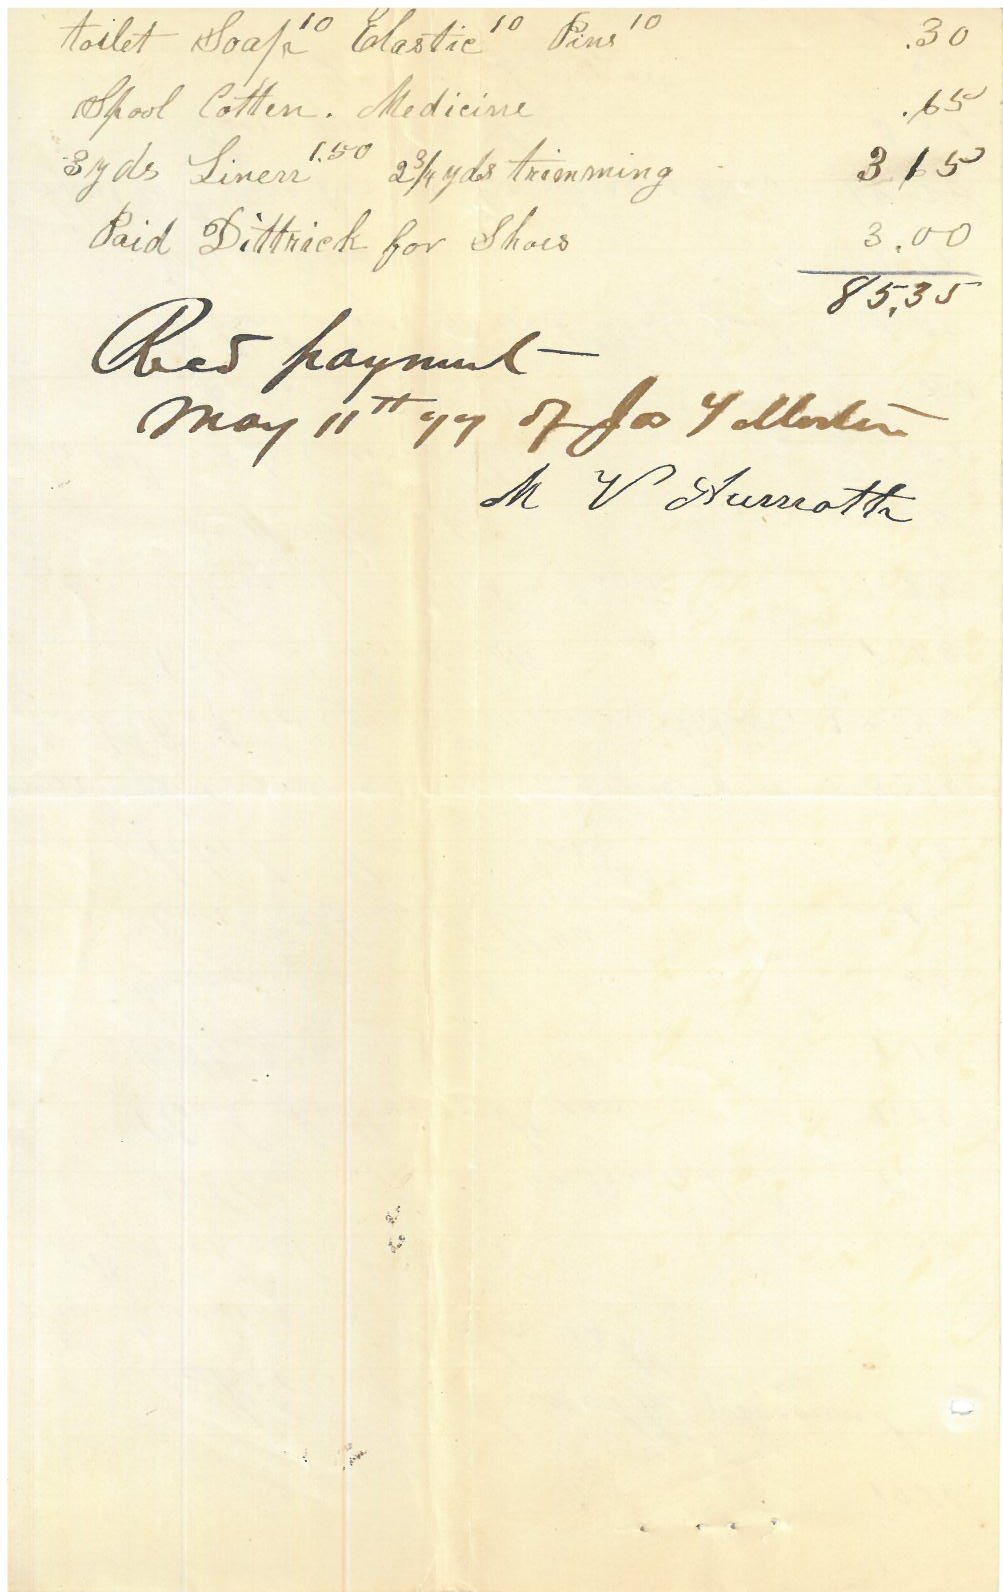 toilet Soap 10 Elastic 10 Pins 10 .30
Spool Cotten. Medicine .65
3 yds Linen 1.50 2 3/4 yds trimming 3 15
Paid Dittrick for Shoes 3.00
85.35
Recd payment
May 11th 77 of Jos
M V